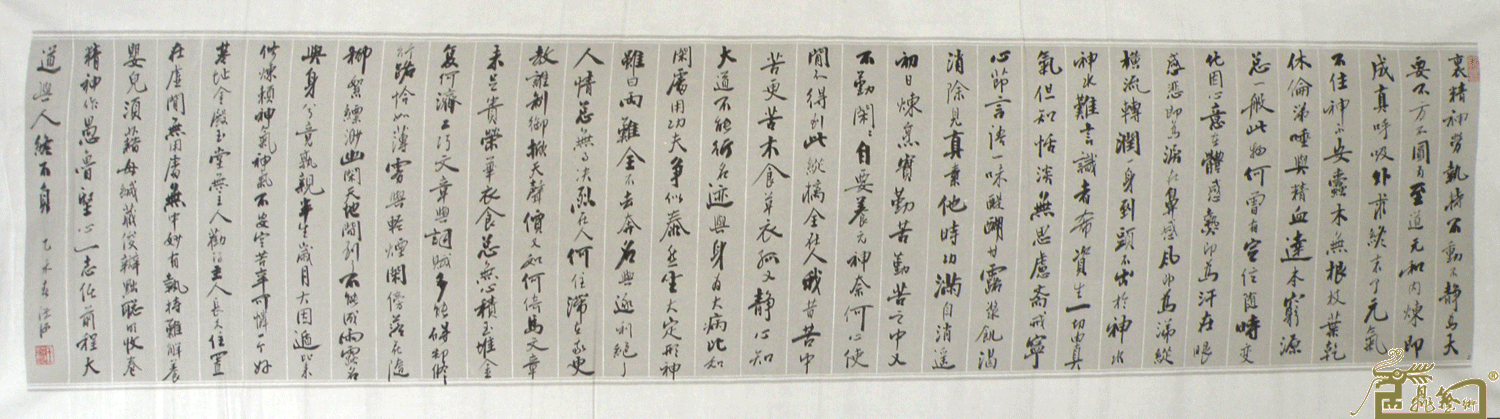 裏精神勞執持不動又靜為夭
要不方不圓為至道元和內煉即
成真呼吸外求終未了元氣
不住神不安蠹木無根枝葉乾
休倫涕唾與精血達本窮源
总一般此物何曾有定位隨時变
化因心意在體感熱即為汗在眼
感悲即為淚在鼻感風即為涕縱
橫流轉潤一身到頭不出於神水
神水難言識者希資生一切由真
氣但知恬淡無思慮齋戒寧
心節言語一味醍醐甘露漿飢渴
消除見真素他時功滿自消遙
初日煉烹實勤苦勤苦之中又
不勤閑々自要養元神奈何心使
閒不得到此縱擒全在人我昔苦中
苦更苦木食草衣孤又靜心知
大道不能行名迹與身為大病比如
閑處用功夫爭似泰然坐大定形神
雖曰兩難全不去奔名與逐利絕了
人情总無事决烈在人何住滯在我更
教誰制御掀天聲價又如何倚馬文章
未足貴榮華衣食总無心積玉堆金
復何濟工巧文章與詞賦多能碍却修
行路恰如薄霧與輕煙閑傍落花隨
柳絮縹渺幽閑天地間到不能成雨露名
與身兮竟孰親半生歲月大因循比來
修煉賴神氣神氣不安空苦辛可憐个好
基址金殿玉堂無主人勸得主人長久住置
在虛閒無用處無中妙有執持難解養
嬰兒須藉母緘藏俊辯黜聰明收卷
精神作愚魯堅心一志任前程大
道與人終不負 乙未春